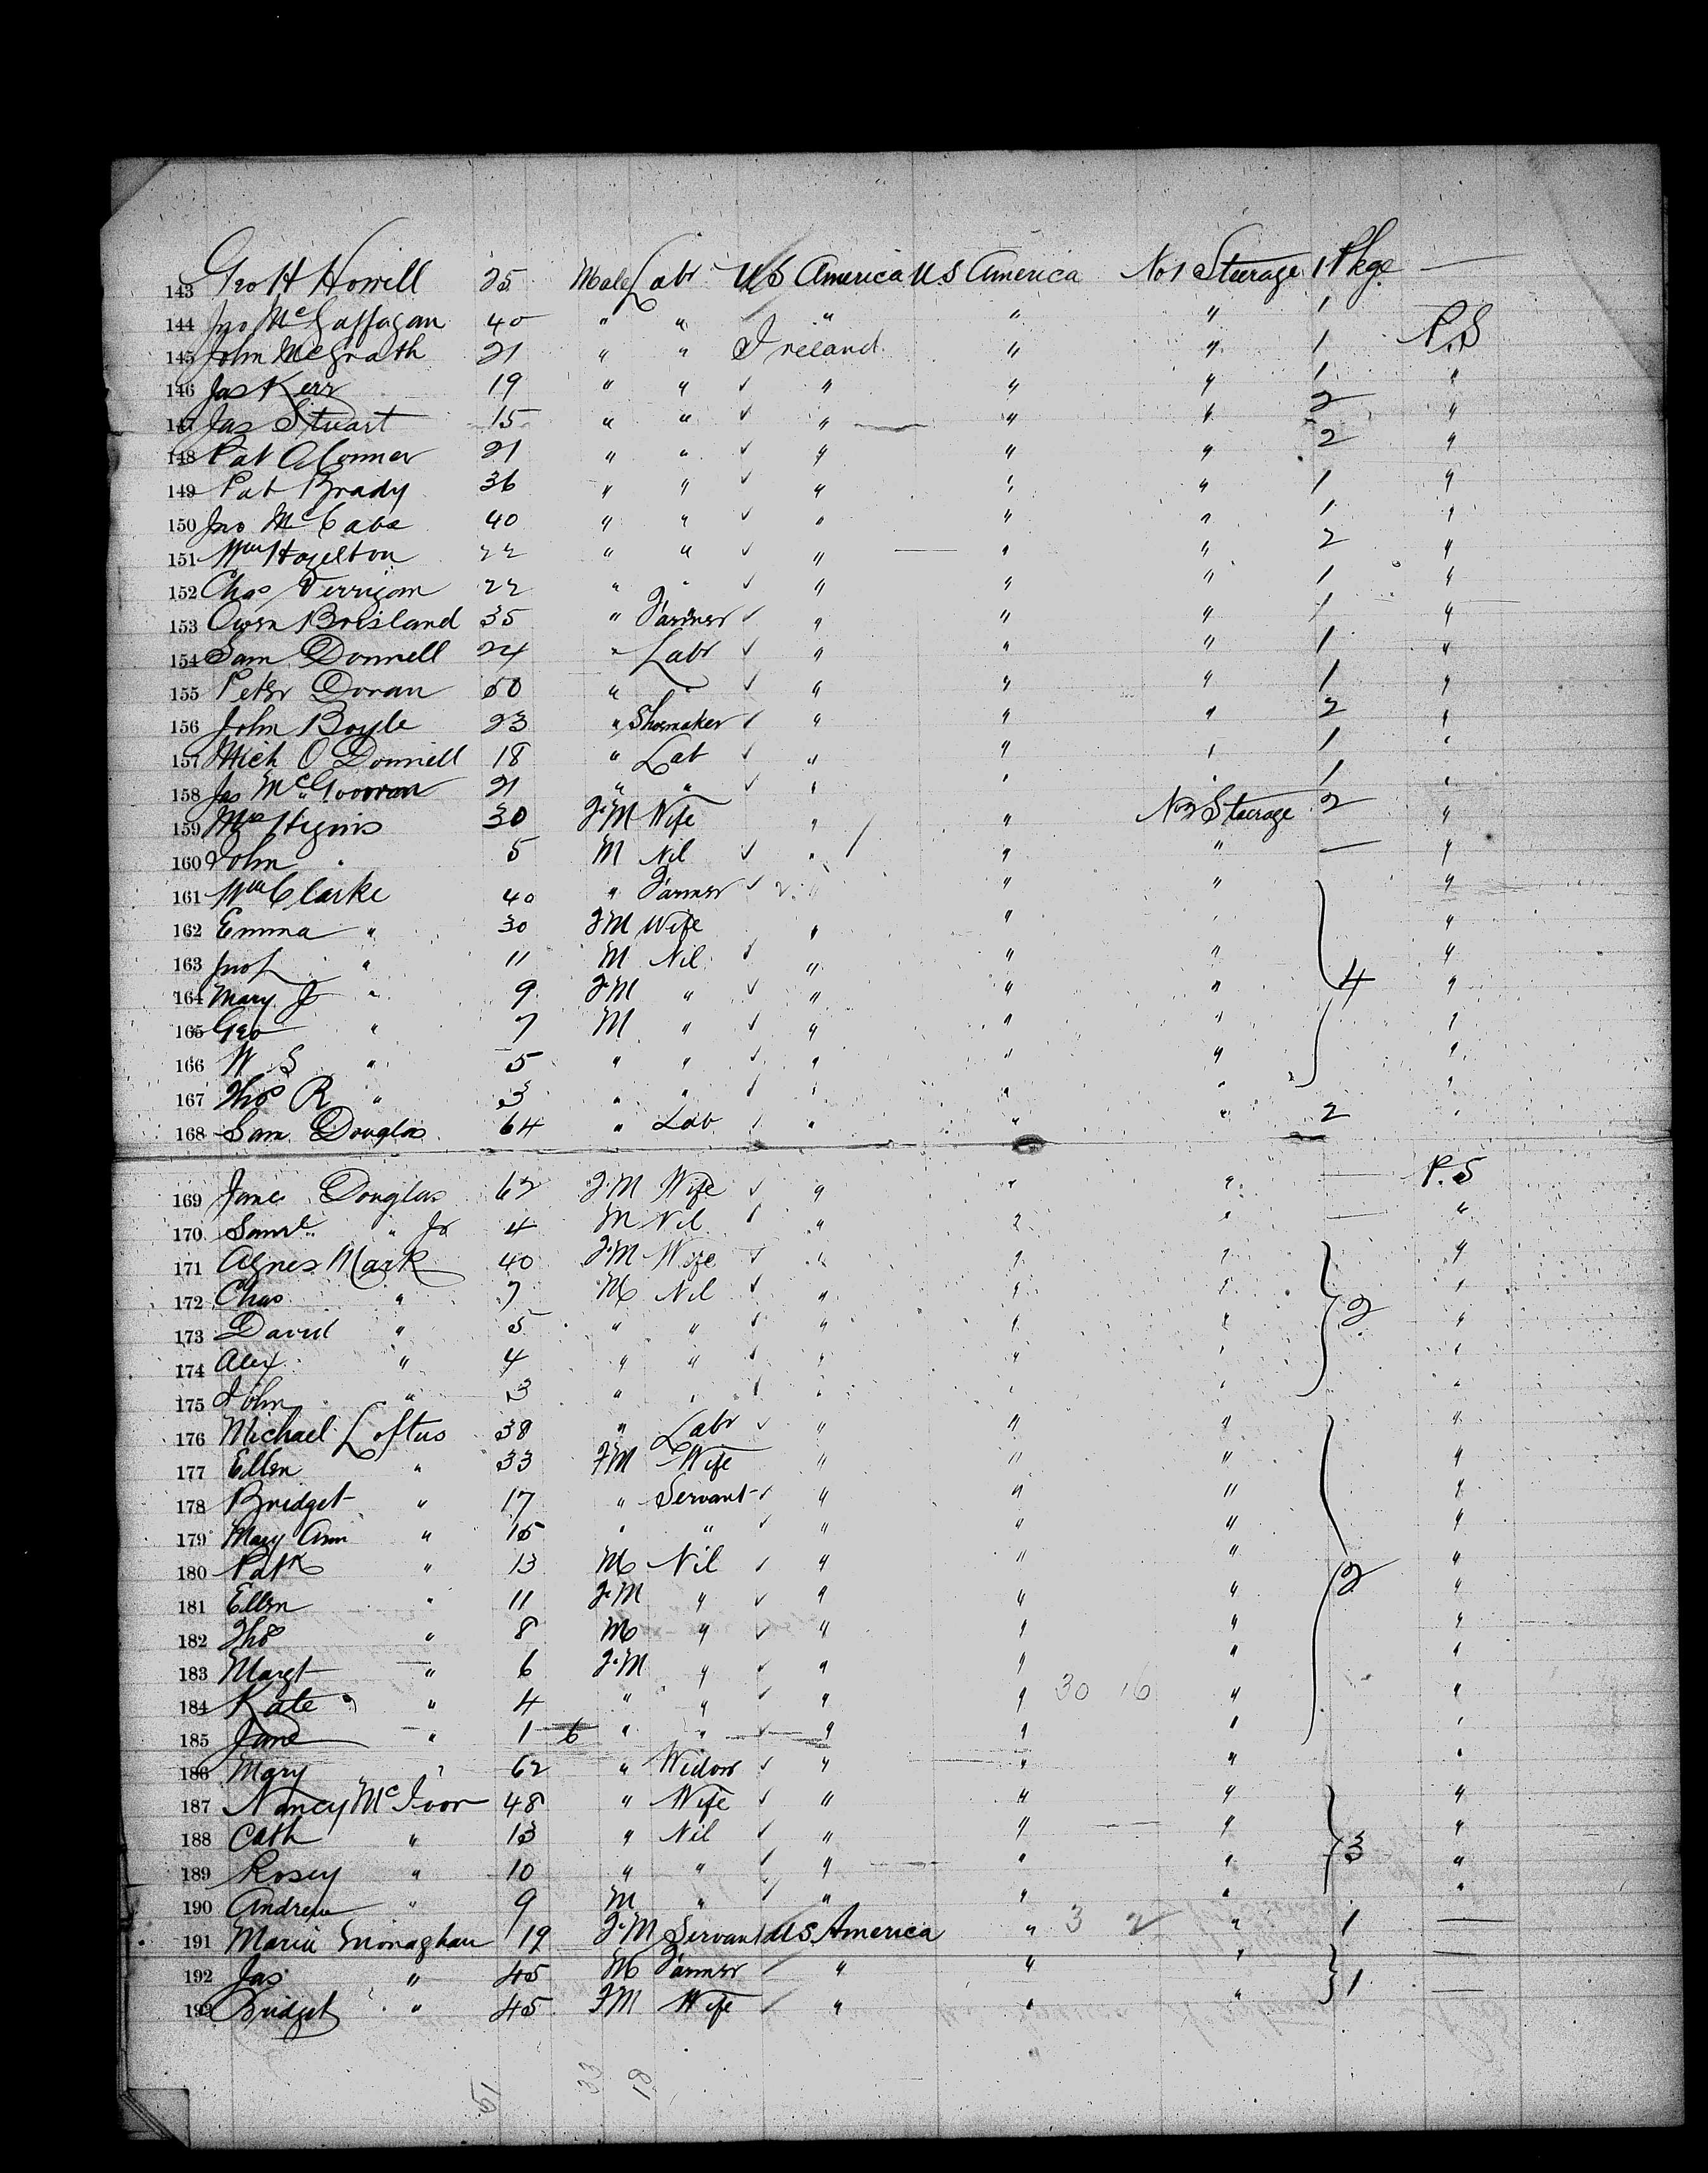 143 Geo H Howell 25 Male Labr US America US America No 1 Steerage 1 Pkge —
144 Jno McGaffagan 40 " " " " " 1
145 John McGrath 21 " " Ireland " " 1 P.S
146 Jas Kerr 19 " " " " " 1 "
147 Jas Stuart 15 " " " " " 2 "
148 Pat OConner 21 " " " " " 2 "
149 Pat Brady 36 " " " " " 1 "
150 Jno McCabe 40 " " " " " 1 "
151 Wm Hazelton 22 " " " " " 2 "
152 Chas 22 " " " " " 1 "
153 Owen Brisland 35 " Farmer " " " 1 "
154 Sam Donnell 24 " Labr " " " 1 "
155 Peter Doran 50 " " " " " 1 "
156 John Boyle 23 " Shoemaker " " " 2 "
157 Mich O Donnell 18 " Lab " " " 1 "
158 Jas 21 " " " " " 1 "
159 Mrs Higins 30 F.M Wife " " No 2 Steerage 2 "
160 John " 5 M Nil " " " — "
161 Wm Clarke 40 " Farmer " " " "
162 Emma " 30 FM Wife " " " "
163 Jno " 11 M Nil " " " "
164 Mary J " 9 F.M " " " " 4 "
165 Geo " 7 M " " " " "
166 W S " 5 " " " " " "
167 Thos R " 3 " " " " " "
168 Sam Douglas 64 " Lab " " " 2 "
169 Jane Douglas 62 F.M Wife " " " — P.S
170 Saml " Jr 4 M Nil " " " — "
171 Agnes Mark 40 F.M Wife " " " "
172 Chas " 7 M Nil " " " 2 "
173 David " 5 " " " " " "
174 Alex " 4 " " " " " "
175 John " 3 " " " " " "
176 Michael Loftus 38 " Labr " " " "
177 Ellen " 33 FM Wife " " " "
178 Bridget " 17 " Servant " " " "
179 Mary Ann " 15 " " " " " "
180 Patk " 13 M Nil " " " 2 "
181 Ellen " 11 F.M " " " " "
182 Thos " 8 M " " " " "
183 Margt " 6 F.M " " " " "
184 Kate " 4 " " " " 30 16 " "
185 Jane " 1 6 " " " " " "
186 Mary " 62 " Widow " " " "
187 Nancy McIvor 48 " Wife " " " "
188 Cath " 13 " Nil " " " 3 "
189 Rosey " 10 " " " " " "
190 Andrew " 9 M " " " " "
191 Maria Monaghan 19 F.M Servant US America " 3 2 " 1 —
192 Jas " 45 M Farmer " " " 1 —
193 Bridget " 45 FM Wife " " " —
51 33 18